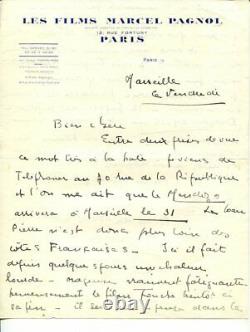 LES FILMS MARCEL PAGNOL
12, RUE FORTUNY
PARIS
PARIS
Marseille
Le Vendredi
Bien chère
Entre deux prises de vue
ce mot très à la hâte je viens de
Téléphoner au 70 rue de la République
et l'on me dit que le Mendoza
arrivera à Marseille le 31
Pierre n'est donc plus loin des
côtes Françaises - Ici il fait
depuis quelques jours une chaleur
lourde - orageuse vraiment fatiguante
heureusement le film touche bientôt à
sa fin - il